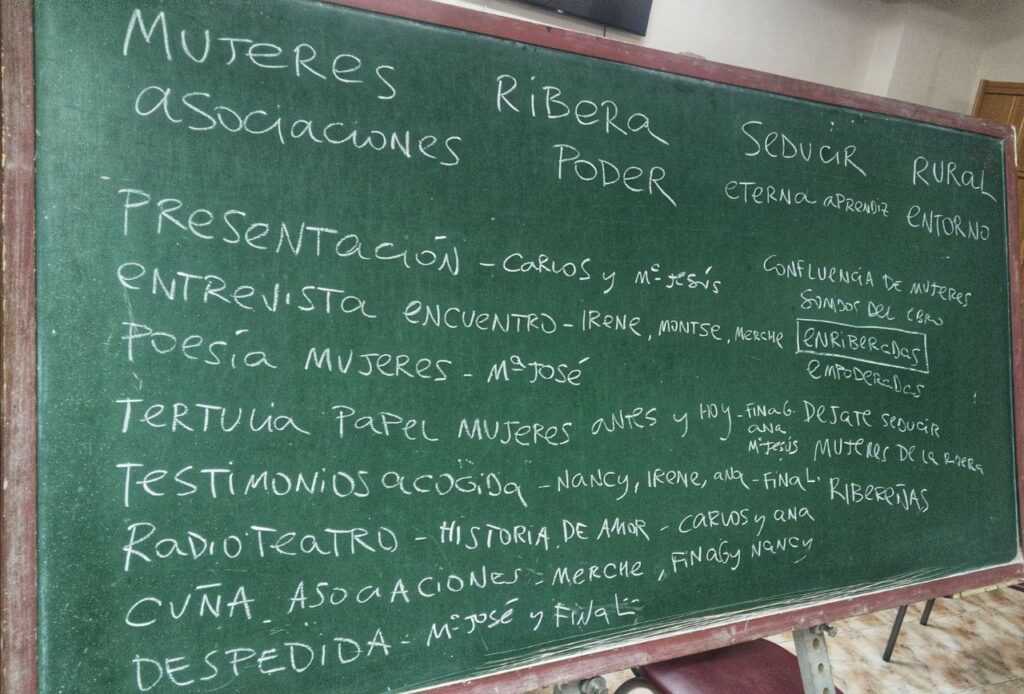 MUJERES RIBERA SEDUCIR RURAL
ASOCIACIONES PODER ETERNA APRENDIZ ENTORNO
PRESENTACIÓN - CARLOS y Mª JESÚS
ENTREVISTA ENCUENTRO - IRENE, MONTSE, MERCHE
POESÍA MUJERES - Mª JOSÉ
TERTULIA PAPEL MUJERES ANTES y HOY - FINA G.
ANA
Mª JESÚS
TESTIMONIOS ACOGIDA - NANCY, IRENE, ANA - FINA L.
RADIOTEATRO - HISTORIA DE AMOR - CARLOS y ANA
CUÑA ASOCIACIONES - MERCHE, FINA G y NANCY
DESPEDIDA - Mª JOSÉ y FINA L
CONFLUENCIA DE MUJERES
SOMOS DEL EBRO
ENRIBERADAS
EMPODERADAS
DEJATE SEDUCIR
MUJERES DE LA RIBERA
RIBEREÑAS